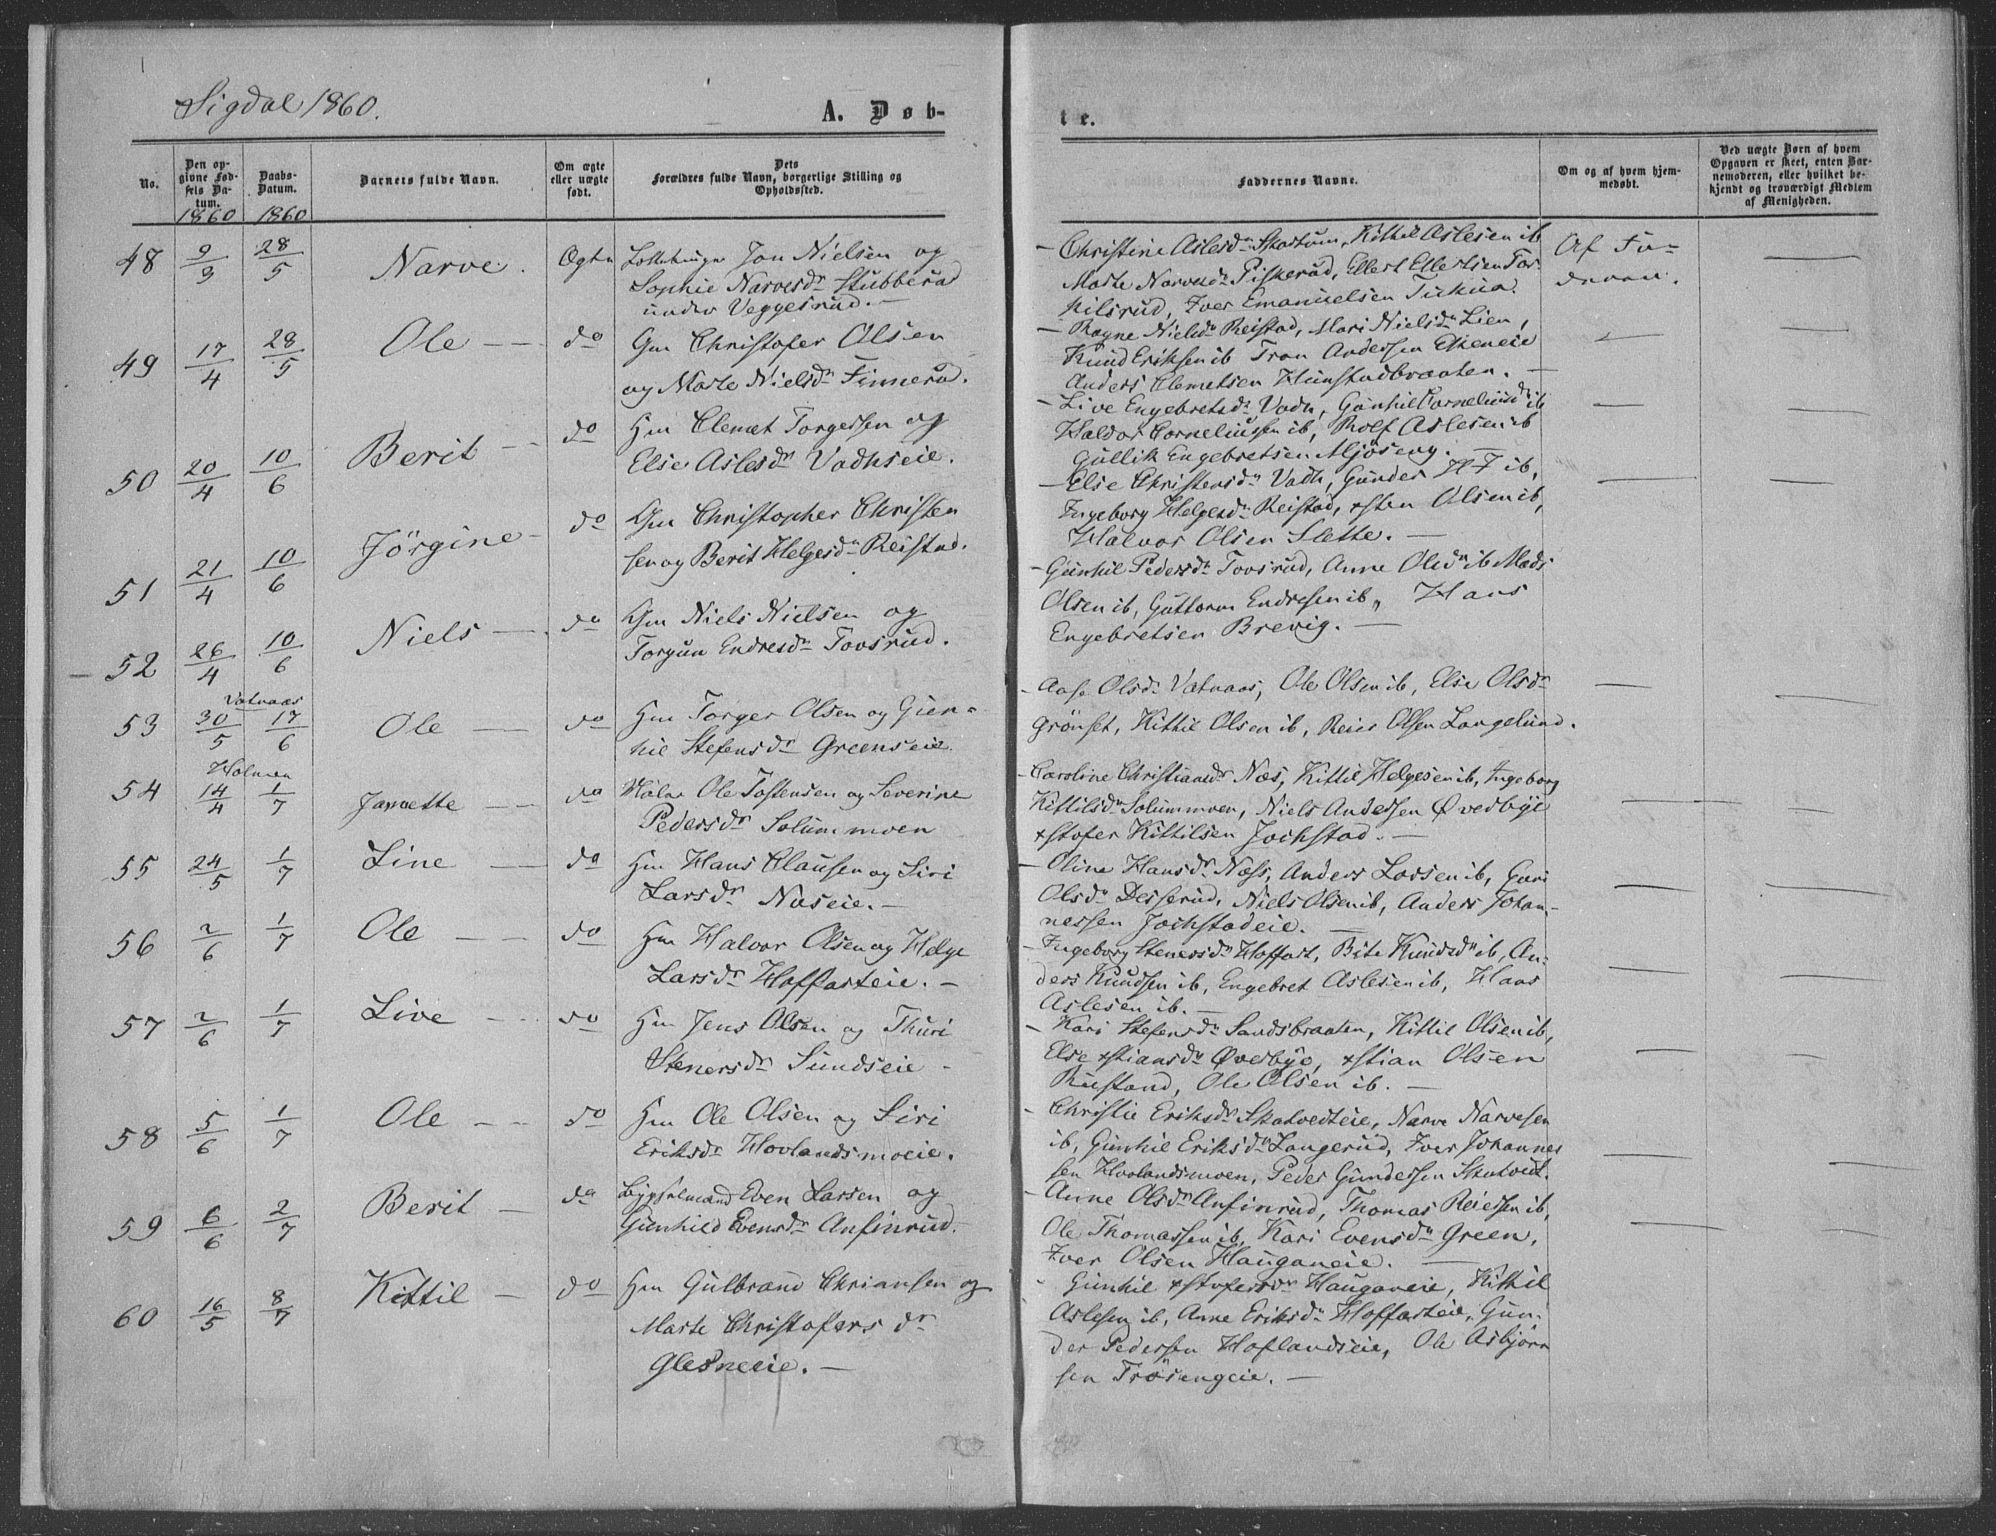 Sigdal 1860.
A. Døb-
te.
No.
Den op-
givne Fød-
sels Da-
tum.
Daabs-
Datum.
Barnets fulde Navn.
Om ægte
eller uægte
født.
Dets
Forældres fulde Navn, borgerlige Stilling og
Opholdssted.
Faddernes Navne.
Om og af hvem hjem-
medøbt.
Ved uægte Børn af hvem
Opgaven er skeet, enten Bar-
nemoderen, eller hvilket be-
kjendt og troværdigt Medlem
af Menigheden.
1860 1860
48 9/3 28/5 Narve. Ægte Jon Nielsen og
Sophie Narvesdr Stubberud
under Veggesrud. —
— Christine Aslesdr Skartum, Kittil Aslesen ib
Marte Narvesdr Piskerud, Ellert Ellertsen Tor-
kilsrud, Iver Emanuelsen
Af Fa-
deren.
49 17/4 28/5 Ole — do Gm Christofer Olsen
og Marte Nielsdr Finnerud.
— Ragne Nielsdr Reistad, Mari Nielsdr Lien,
Knud Eriksen ib Tron Andersen Ekeneie
Anders Clemetsen Hunstadbraaten. —
50 20/4 10/6 Berit — do Hm Clemet Torgersen og
Else Aslesdr Vadhseie.
— Live Engebretsdr Vadh, Gunhil Corneliusdr ib
Haldor Corneliussen ib, Rolf Aslesen ib
Gullik Engebretsen Mjøseng. —
51 21/4 10/6 Jörgine — do Gm Christopher Christen
sen og Berit Helgesdr Reistad.
— Else Christensdr Vadh, Gunder ib,
Ingeborg Helgesdr Reistad, xsten Olsen ib,
Halvor Olsen Slette. —
52 26/4 10/6 Niels — do Gm Niels Nielsen og
Torgun Endresdr Tovsrud.
— Gunhil Pedersdr Tovsrud, Anne Olsdr ib Mads
Olsen ib, Guttorm Endresen ib, Hans
Engebretsen Brevig. —
Vatnaas
53 30/5 17/6 Ole — do Hm Torger Olsen og Gun-
hil Stefensdr Greenseie
— Aase Olsdr Vatnaas, Ole Olsen ib, Else Olsdr
Grönset, Kittil Olsen ib, Reier Olsen Langelund.
Holmen
54 14/4 1/7 Janette — do Ole Tostensen og Severine
Pedersdr Solummoen
— Caroline Christiansdr Næs, Kittil Helgesen ib, Ingeborg
Kittilsdr Solummoen, Niels Andersen Øverbye
xstofer Kittilsen Jochstad. —
55 24/5 1/7 Line — do Hm Hans Clausen og Siri
Larsdr Næseie. —
— Oline Hansdr Næss, Anders Larsen ib, Guri
Olsdr Desserud, Niels Olsen ib, Anders Johan-
nessen Jochstadeie. —
56 2/6 1/7 Ole — do Hm Halvor Olsen og Helge
Larsdr Hoffarteie. —
— Ingeborg Stenersdr Hoffart, Bite Knudsdr ib, An-
ders Knudsen ib, Engebret Aslesen ib, Hans
Aslesen ib. —
57 2/6 1/7 Live — do Hm Jens Olsen og Thuri
Stenersdr Sundseie —
— Kari Stefensdr Sandsbraaten, Kittil Olsen ib,
Else xstiansdr Øverbye, xstian Olsen
Rustand, Ole Olsen ib. —
58 5/6 1/7 Ole — do Hm Ole Olsen og Siri
Eriksdr Hovlandsmoeie.
— Christie Eriksdr Skatvedteie, Narve Narvesen
ib, Gunhil Eriksdr Langerud, Iver Johannes
sen Hovlandsmoen, Peder Gundersen Skatvedt.
59 6/6 2/7 Berit — do Bygselmand Even Larsen og
Gunhild Evensdr Anfinrud.
— Anne Olsdr Anfinrud, Thomas Reiersen ib,
Ole Thomassen ib, Kari Evensdr Green,
Iver Olsen Hauganeie. —
60 16/5 8/7 Kittil — do Hm Gulbrand Chriansen og
Marte Christofers dr
Glesneeie. —
Gunhil xstofersdr Hauganeie, Kittil
Aslesen ib, Anne Eriksdr Hoffarteie, Gun-
der Pedersen Hoflandseie, Ole Asbjörn
sen Trösengeie. —